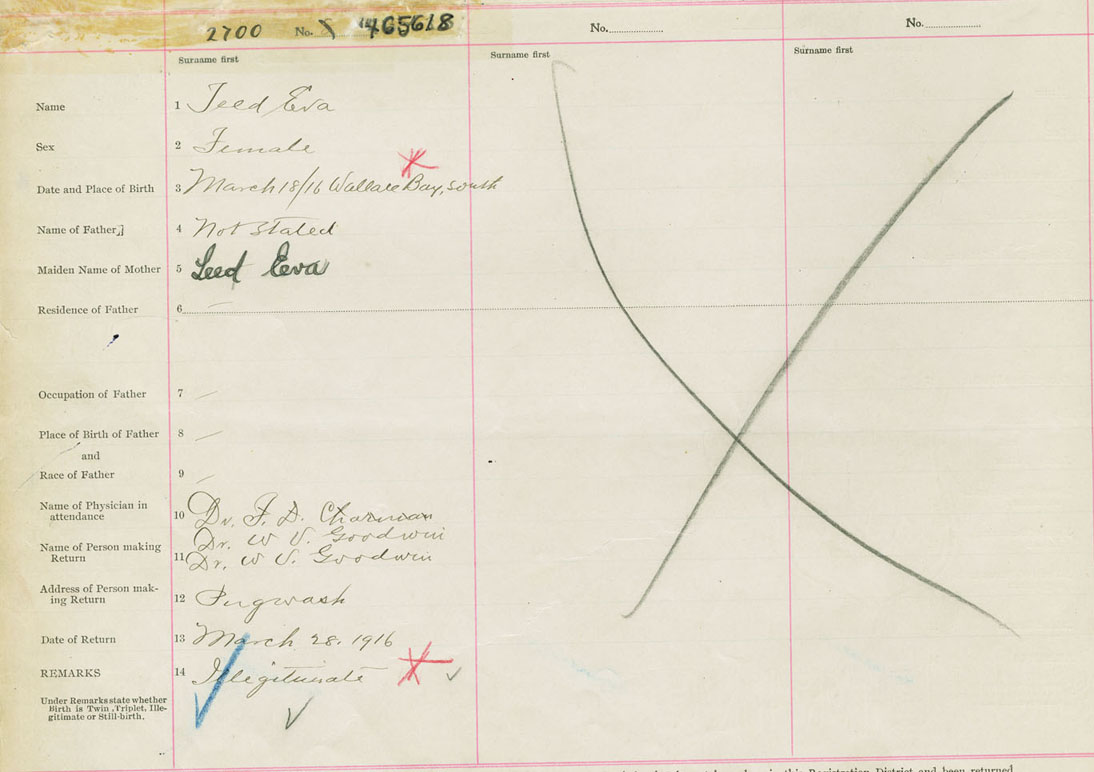 2700 No. 465618 No. No.
Surname first Surname first Surname first
Name 1 Teed Eva
Sex 2 Female
Date and Place of Birth 3 March 18/16 Wallace Bay, South
Name of Father 4 Not Stated
Maiden Name of Mother 5 Teed Eva
Residence of Father 6
Occupation of Father 7
Place of Birth of Father 8
and
Race of Father 9
Name of Physician in
attendance 10 Dr. F. D. Charman
Dr. W V. Goodwin
Name of Person making
Return 11 Dr. W V. Goodwin
Address of Person mak-
ing Return 12 Pugwash
Date of Return 13 March 28. 1916
REMARKS 14 Illegitimate
Under Remarks state whether
Birth is Twin, Triplet, Ille-
gitimate or Still-birth.
in this Registration District and been returned